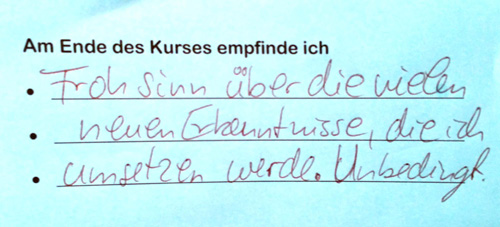 Am Ende des Kurses empfinde ich
• Frohsinn über die vielen
• neuen Erkenntnisse, die ich
• umsetzen werde. Unbedingt.